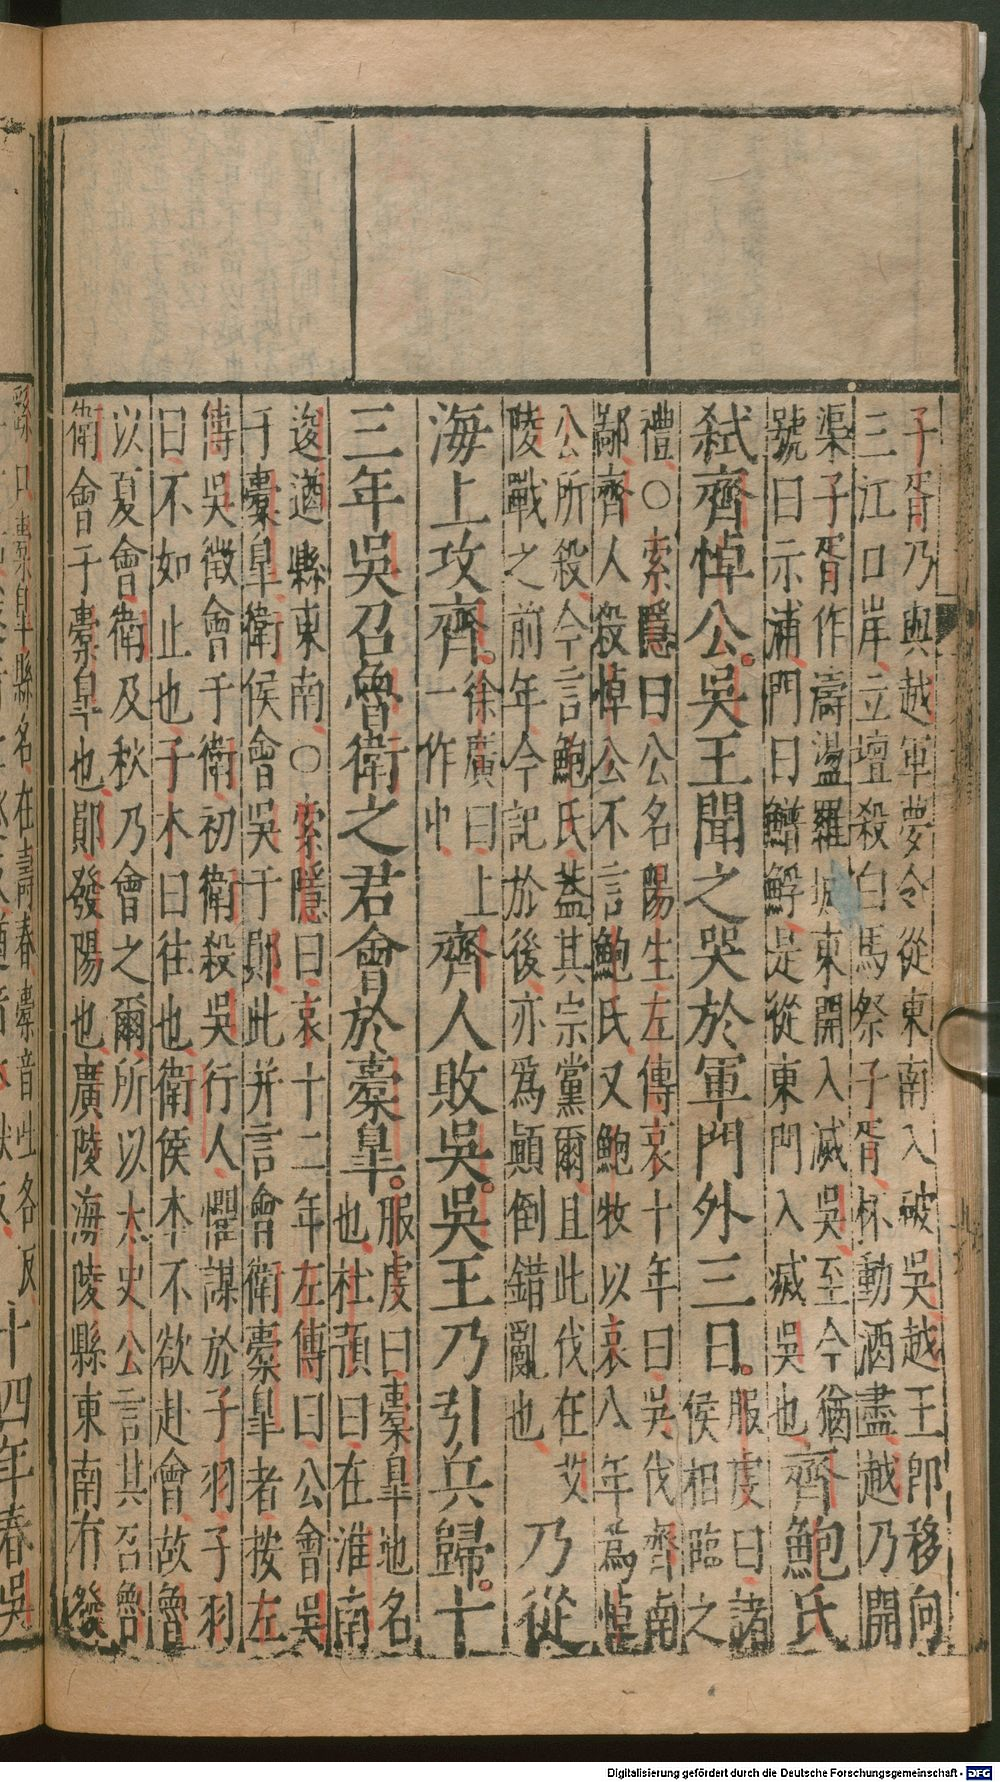 子胥乃與越軍夢令從東南入破吳越王即移向
三江口岸立壇殺白馬祭子胥杯動酒盡越乃開
渠子胥作濤盪羅城東開入滅吳至今猶
號曰示浦門曰鱛䱐是從東門入滅吳也齊鮑氏
弒齊悼公吳王聞之哭於軍門外三日服虔曰諸
侯相臨之
禮○索隱曰公名陽生左傳哀十年曰吳伐齊南
鄙齊人殺悼公不言鮑氏又鮑牧以哀八年爲悼
公所殺今言鮑氏蓋其宗黨爾且此伐在艾
陵戰之前年今記於後亦爲顚倒錯亂也乃從
海上攻齊徐廣曰上
一作中齊人敗吳吳王乃引兵歸十
三年吳召魯衛之君會於橐皐服虔曰橐皐地名
也杜預曰在淮南
逡遒縣東南○索隱曰哀十二年左傳曰公會吳
于橐皐衛侯會吳于鄖此并言會衛橐皐者按左
傳吳徵會于衛初衛殺吳行人懼謀於子羽子羽
曰不如止也子木曰往也衛侯本不欲赴會故魯
以夏會衛及秋乃會之爾所以太史公言其召魯
衛會于橐皐也鄖發陽也廣陵海陵縣東南有發
繇口橐皐縣名在壽春橐音
十四年春吳
Digitalisierung gefördert durch die Deutsche Forschungsgemeinschaft - DFG